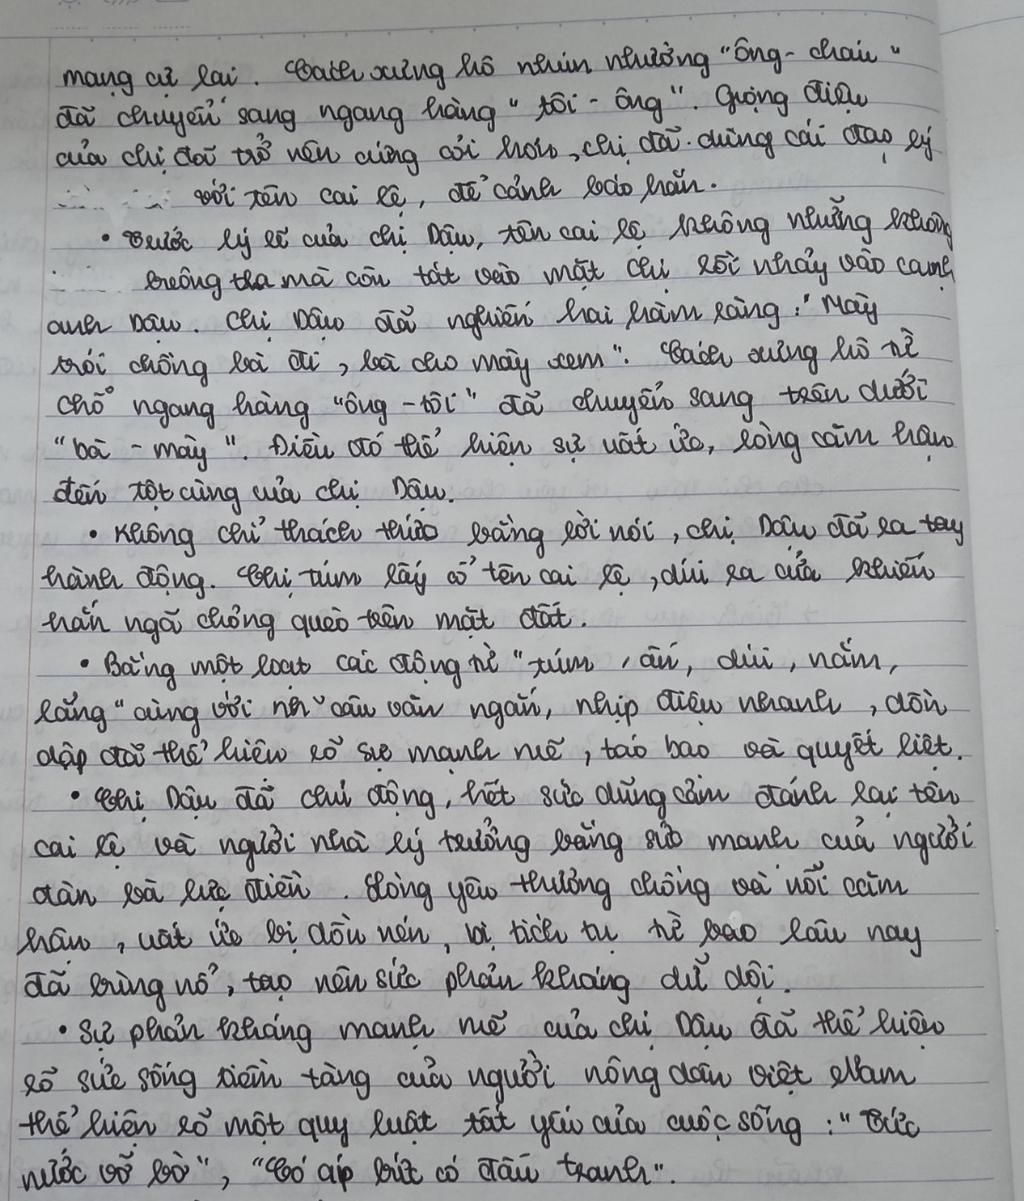 mạng cự lại. Cách xưng hô nhún nhường "ông - cháu"
đã chuyển sang ngang hàng "tôi - ông". Giọng điệu
của chị đã trở nên cứng cỏi hơn, chị đã dùng cái đạo lý
với tên cai lệ, để cảnh báo hắn.
• Trước lý lẽ của chị Dậu, tên cai lệ không những không
buông tha mà còn tát vào mặt chị rồi nhảy vào cạnh
anh Dậu. Chị Dậu đã nghiến hai hàm răng: "Mày
trói chồng bà đi, bà cho mày xem". Cách xưng hô từ
chỗ ngang hàng "ông - tôi" đã chuyển sang trên dưới
"bà - mày". Điều đó thể hiện sự uất ức, lòng căm hận
đến tột cùng của chị Dậu.
• Không chỉ thách thức bằng lời nói, chị Dậu đã ra tay
hành động. Chị túm lấy cổ tên cai lệ, dúi ra cửa khiến
hắn ngã chỏng quèo trên mặt đất.
• Bằng một loạt các động từ "túm, ấn, dúi, nắm,
lẳng" cùng với câu văn ngắn, nhịp điệu nhanh, dồn
dập đã thể hiện rõ sự mạnh mẽ, táo bạo và quyết liệt.
• Chị Dậu đã chủ động, hết sức dũng cảm đánh lại tên
cai lệ và người nhà lý trưởng bằng sức mạnh của người
đàn bà lực điền. Lòng yêu thương chồng và nỗi căm
hận, uất ức bị dồn nén, bị tích tụ từ bao lâu nay
đã bùng nổ, tạo nên sức phản kháng dữ dội.
• Sự phản kháng mạnh mẽ của chị Dậu đã thể hiện
rõ sức sống tiềm tàng của người nông dân Việt Nam
thể hiện rõ một quy luật tất yếu của cuộc sống: "Tức
nước vỡ bờ", "Có áp bức có đấu tranh".